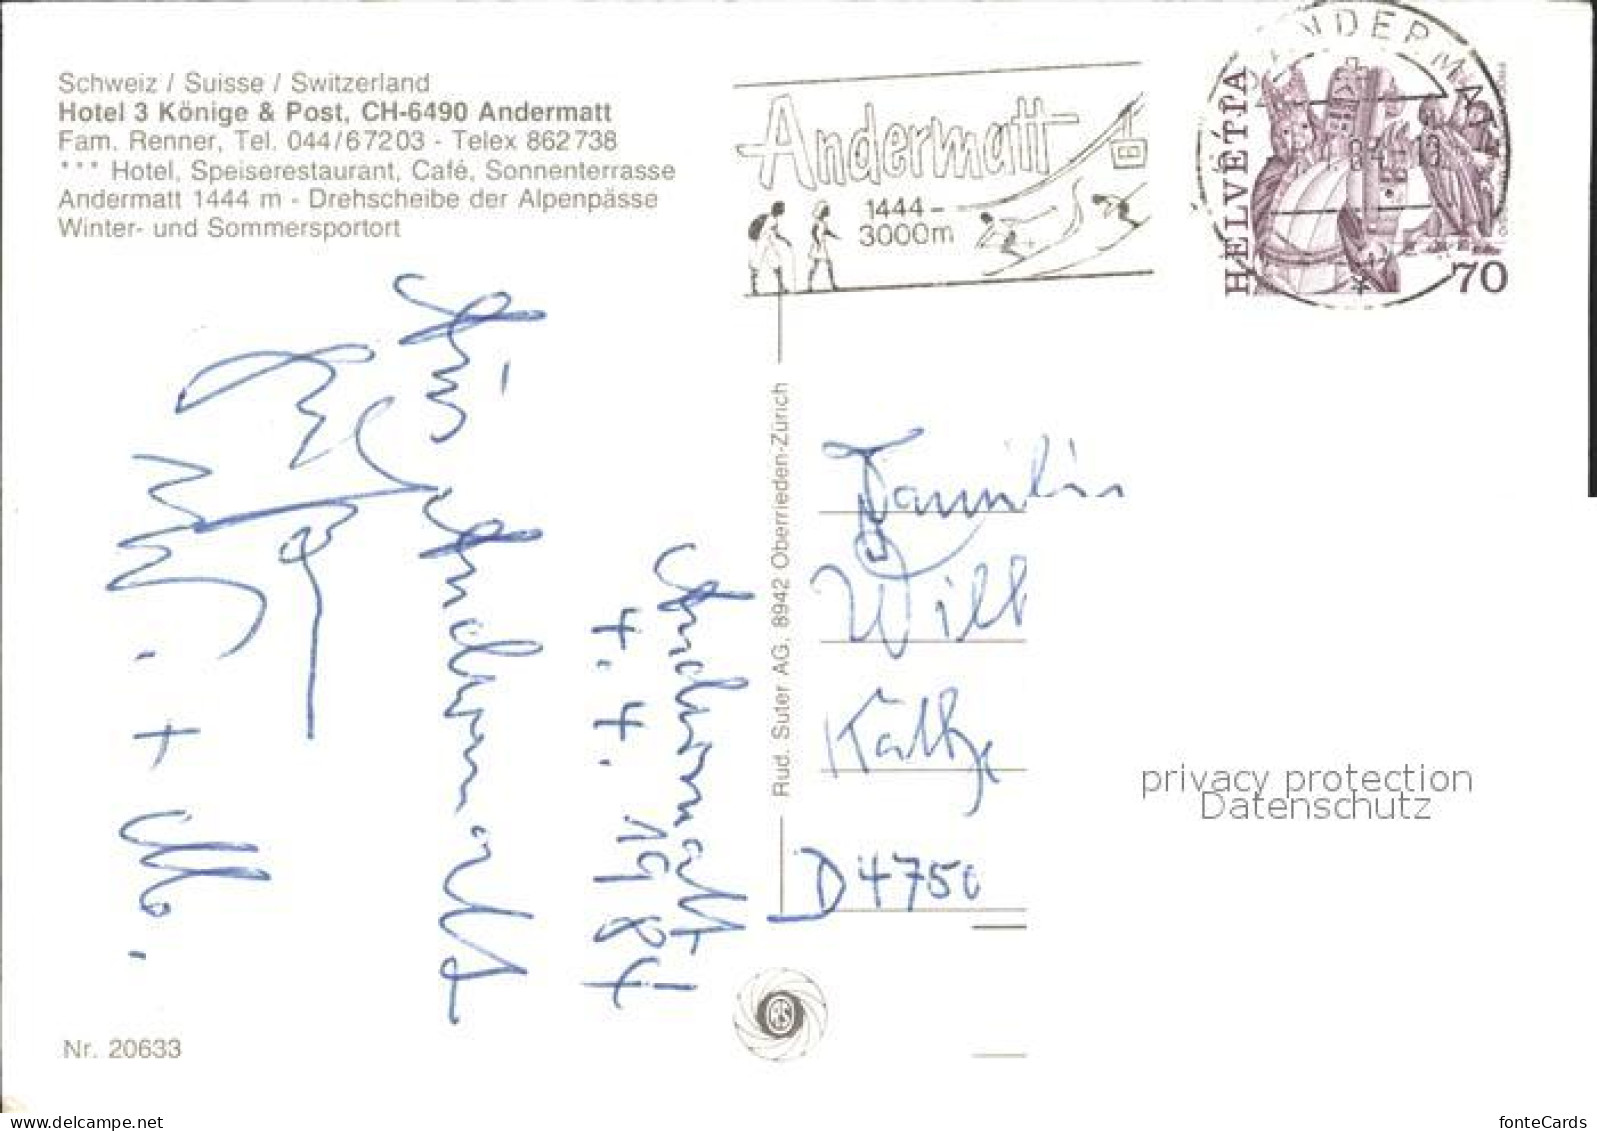 Schweiz / Suisse / Switzerland
Hotel 3 Könige & Post, CH-6490 Andermatt
Fam. Renner, Tel. 044/67203 - Telex 862738
*** Hotel, Speiserestaurant, Café, Sonnenterrasse
Andermatt 1444 m - Drehscheibe der Alpenpässe
Winter- und Sommersportort
Andermatt
1444 -
3000m
ANDERMAT
HELVETIA
70
Andermatt,
4. 4. 1984
Aus Andermatt
Rud. Suter AG, 8942 Oberrieden-Zürich
Familie
Will
Käthe
D 4750
privacy protection
Datenschutz
Nr. 20633
www.delcampe.net
fonteCards